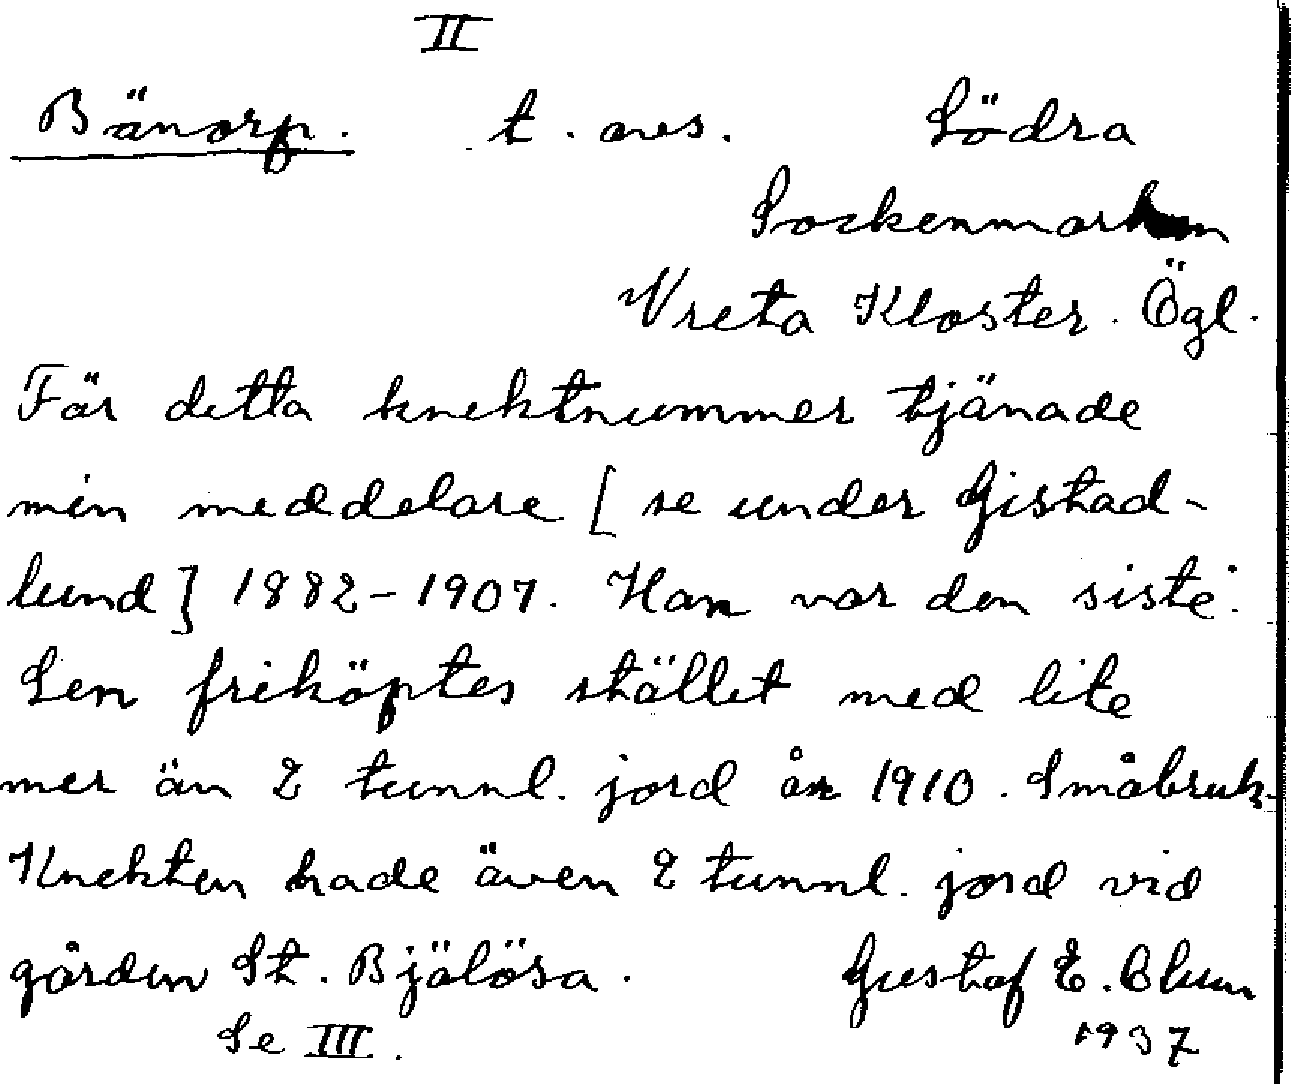 II
Bänorp. t. ans. Södra
Sockenmarken
Vreta Kloster. Ögl.
För detta knektnummer tjänade
min meddelare [se under Gistad-
lund] 1882-1907. Han var den siste.
Sen friköptes stället med lite
mer än 2 tunnl. jord år 1910. Småbruk.
Knekten hade även 2 tunnl. jord vid
gården St. Bjälösa. Gustaf E. Blum
Se III. 1937